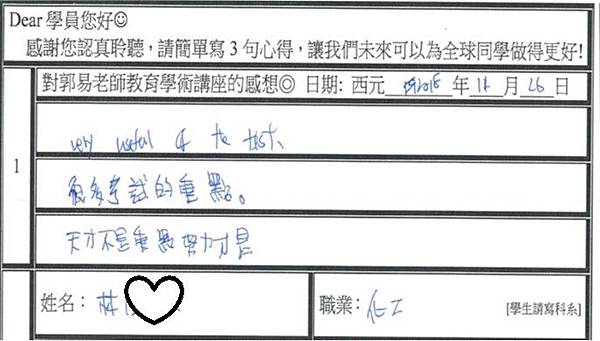 Dear 學員您好☺
感謝您認真聆聽，請簡單寫 3 句心得，讓我們未來可以為全球同學做得更好!
對郭易老師教育學術講座的感想◎ 日期: 西元 2018 年 11 月 26 日
1
very useful of the test、
很多考試的重點。
天才不是重點努力才是
姓名： 林
職業： 化工 [學生請寫科系]